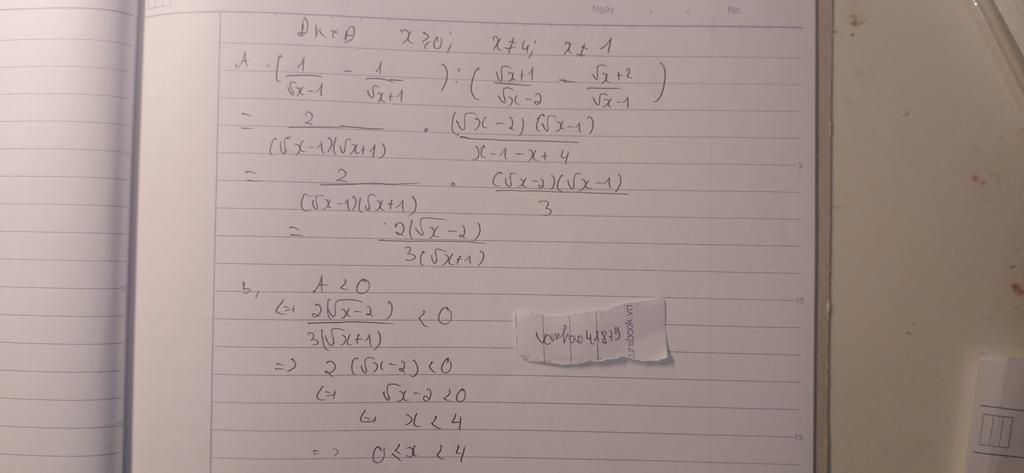 Ngày . . No.
ĐKXĐ x ≥ 0; x ≠ 4; x ≠ 1
A = (1/(√x-1) - 1/(√x+1)) : ((√x+1)/(√x-2) - (√x+2)/(√x-1))
= 2/((√x-1)(√x+1)) . ((√x-2)(√x-1))/(x-1-x+4)
= 2/((√x-1)(√x+1)) . ((√x-2)(√x-1))/3
= 2(√x-2)/(3(√x+1))
b, A < 0
<=> 2(√x-2)/(3(√x+1)) < 0
=> 2(√x-2) < 0
<=> √x-2 < 0
<=> x < 4
=> 0 ≤ x < 4
5
10
15